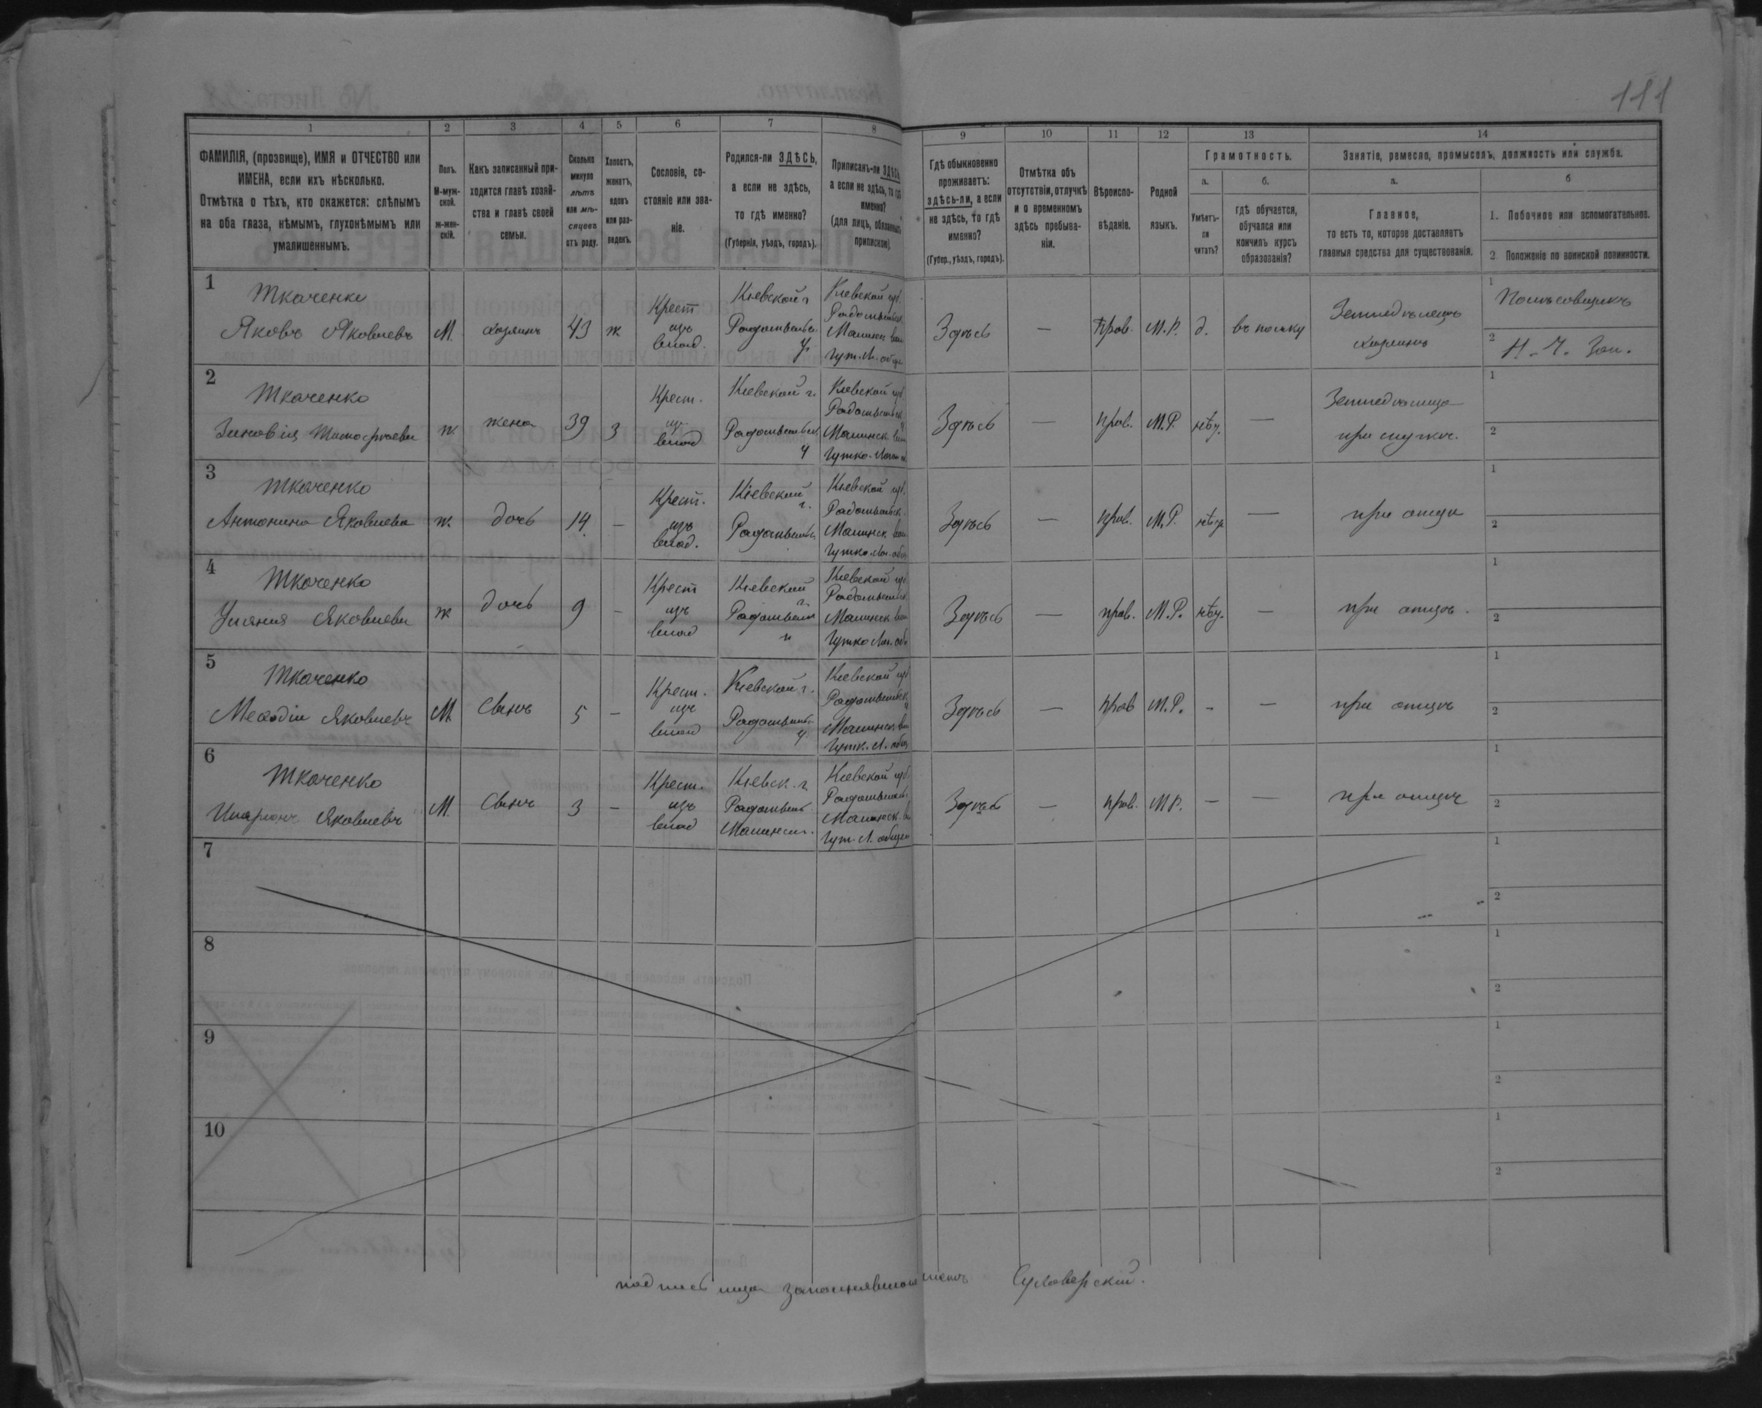 111
1 2 3 4 5 6 7 8 9 10 11 12 13 14
ФАМИЛІЯ, (прозвище), ИМЯ и ОТЧЕСТВО или
ИМЕНА, если ихъ нѣсколько.
Отмѣтка о тѣхъ, кто окажется: слѣпымъ
на оба глаза, нѣмымъ, глухонѣмымъ или
умалишеннымъ.
Полъ.
М-муж-
ской.
ж-жен-
скій.
Какъ записанный при-
ходится главѣ хозяй-
ства и главѣ своей
семьи.
Сколько
минуло
лѣтъ
или мѣ-
сяцевъ
отъ роду.
Холостъ,
женатъ,
вдовъ
или раз-
веденъ.
Сословіе, со-
стояніе или зва-
ніе.
Родился-ли ЗДѢСЬ,
а если не здѣсь,
то гдѣ именно?
(Губернія, уѣздъ, городъ).
Приписанъ-ли ЗДѢСЬ,
а если не здѣсь, то гдѣ
именно?
(для лицъ, обязанныхъ
припиской).
Гдѣ обыкновенно
проживаетъ:
здѣсь-ли, а если
не здѣсь, то гдѣ
именно?
(Губер., уѣздъ, городъ).
Отмѣтка объ
отсутствіи, отлучкѣ
и о временномъ
здѣсь пребыва-
ніи.
Вѣроиспо-
вѣданіе.
Родной
языкъ.
Грамотность.
а.
Умѣетъ-
ли
читать?
б.
гдѣ обучается,
обучался или
кончилъ курсъ
образованія?
Занятіе, ремесло, промыселъ, должность или служба.
а.
Главное,
то есть то, которое доставляетъ
главныя средства для существованія.
б
1. Побочное или вспомогательное.
2. Положеніе по воинской повинности.
1
Ткаченко
Яковъ Яковлевъ
М. хозяинъ 43 ж
Крест
изъ
влад.
Кіевской г
Радомысль.
у.
Кіевской губ.
Радомысльск.
Малинск вол
Гут.-Л. общ.
Здѣсь — прав. М.Р. д. въ полку
Земледѣлецъ
хозяинъ
1
2
2
Ткаченко
Зиновія
ж. жена 39 з
Крест.
изъ
влад
Кіевской г.
Радомысльск
у
Кіевской губ.
Радомысльск
Малинск вол
Здѣсь — прав. М.Р. —
при мужѣ.
1
2
3
Ткаченко
Антонина Яковлева
ж. дочь 14 —
Крест.
изъ
влад.
Кіевской
г.
Радомысль
Кіевской губ.
Радомысльск.
Малинск вол
Здѣсь — прав. М.Р. —
при отцѣ
1
2
4
Ткаченко
Уляна Яковлева
ж дочь 9 —
Крест
изъ
влад
Кіевской
г.
Радомысль
у
Кіевской губ
Радомысльск
Малинск вол
Здѣсь — прав. М.Р. —
при отцѣ.
1
2
5
Ткаченко
Меѳодій Яковлевъ
М. сынъ 5 —
Крест.
изъ
влад
Кіевской г.
Радомысль
у
Кіевской губ
Радомысльск
Малинск. вол
Гутк. Л. общ
Здѣсь — прав М.Р. - —
при отцѣ
1
2
6
Ткаченко
Иларіонъ Яковлевъ
М. сынъ 3 —
Крест.
изъ
влад
Кіевск. г
Радомысль
Малинск.
Кіевской губ
Радомысльск.
Малинск. в
Гут. Л. общ
Здѣсь — прав. М.Р. — —
при отцѣ
1
2
7
1
2
8
1
2
9
1
2
10
1
2
подпись лица заполнявшаго листъ